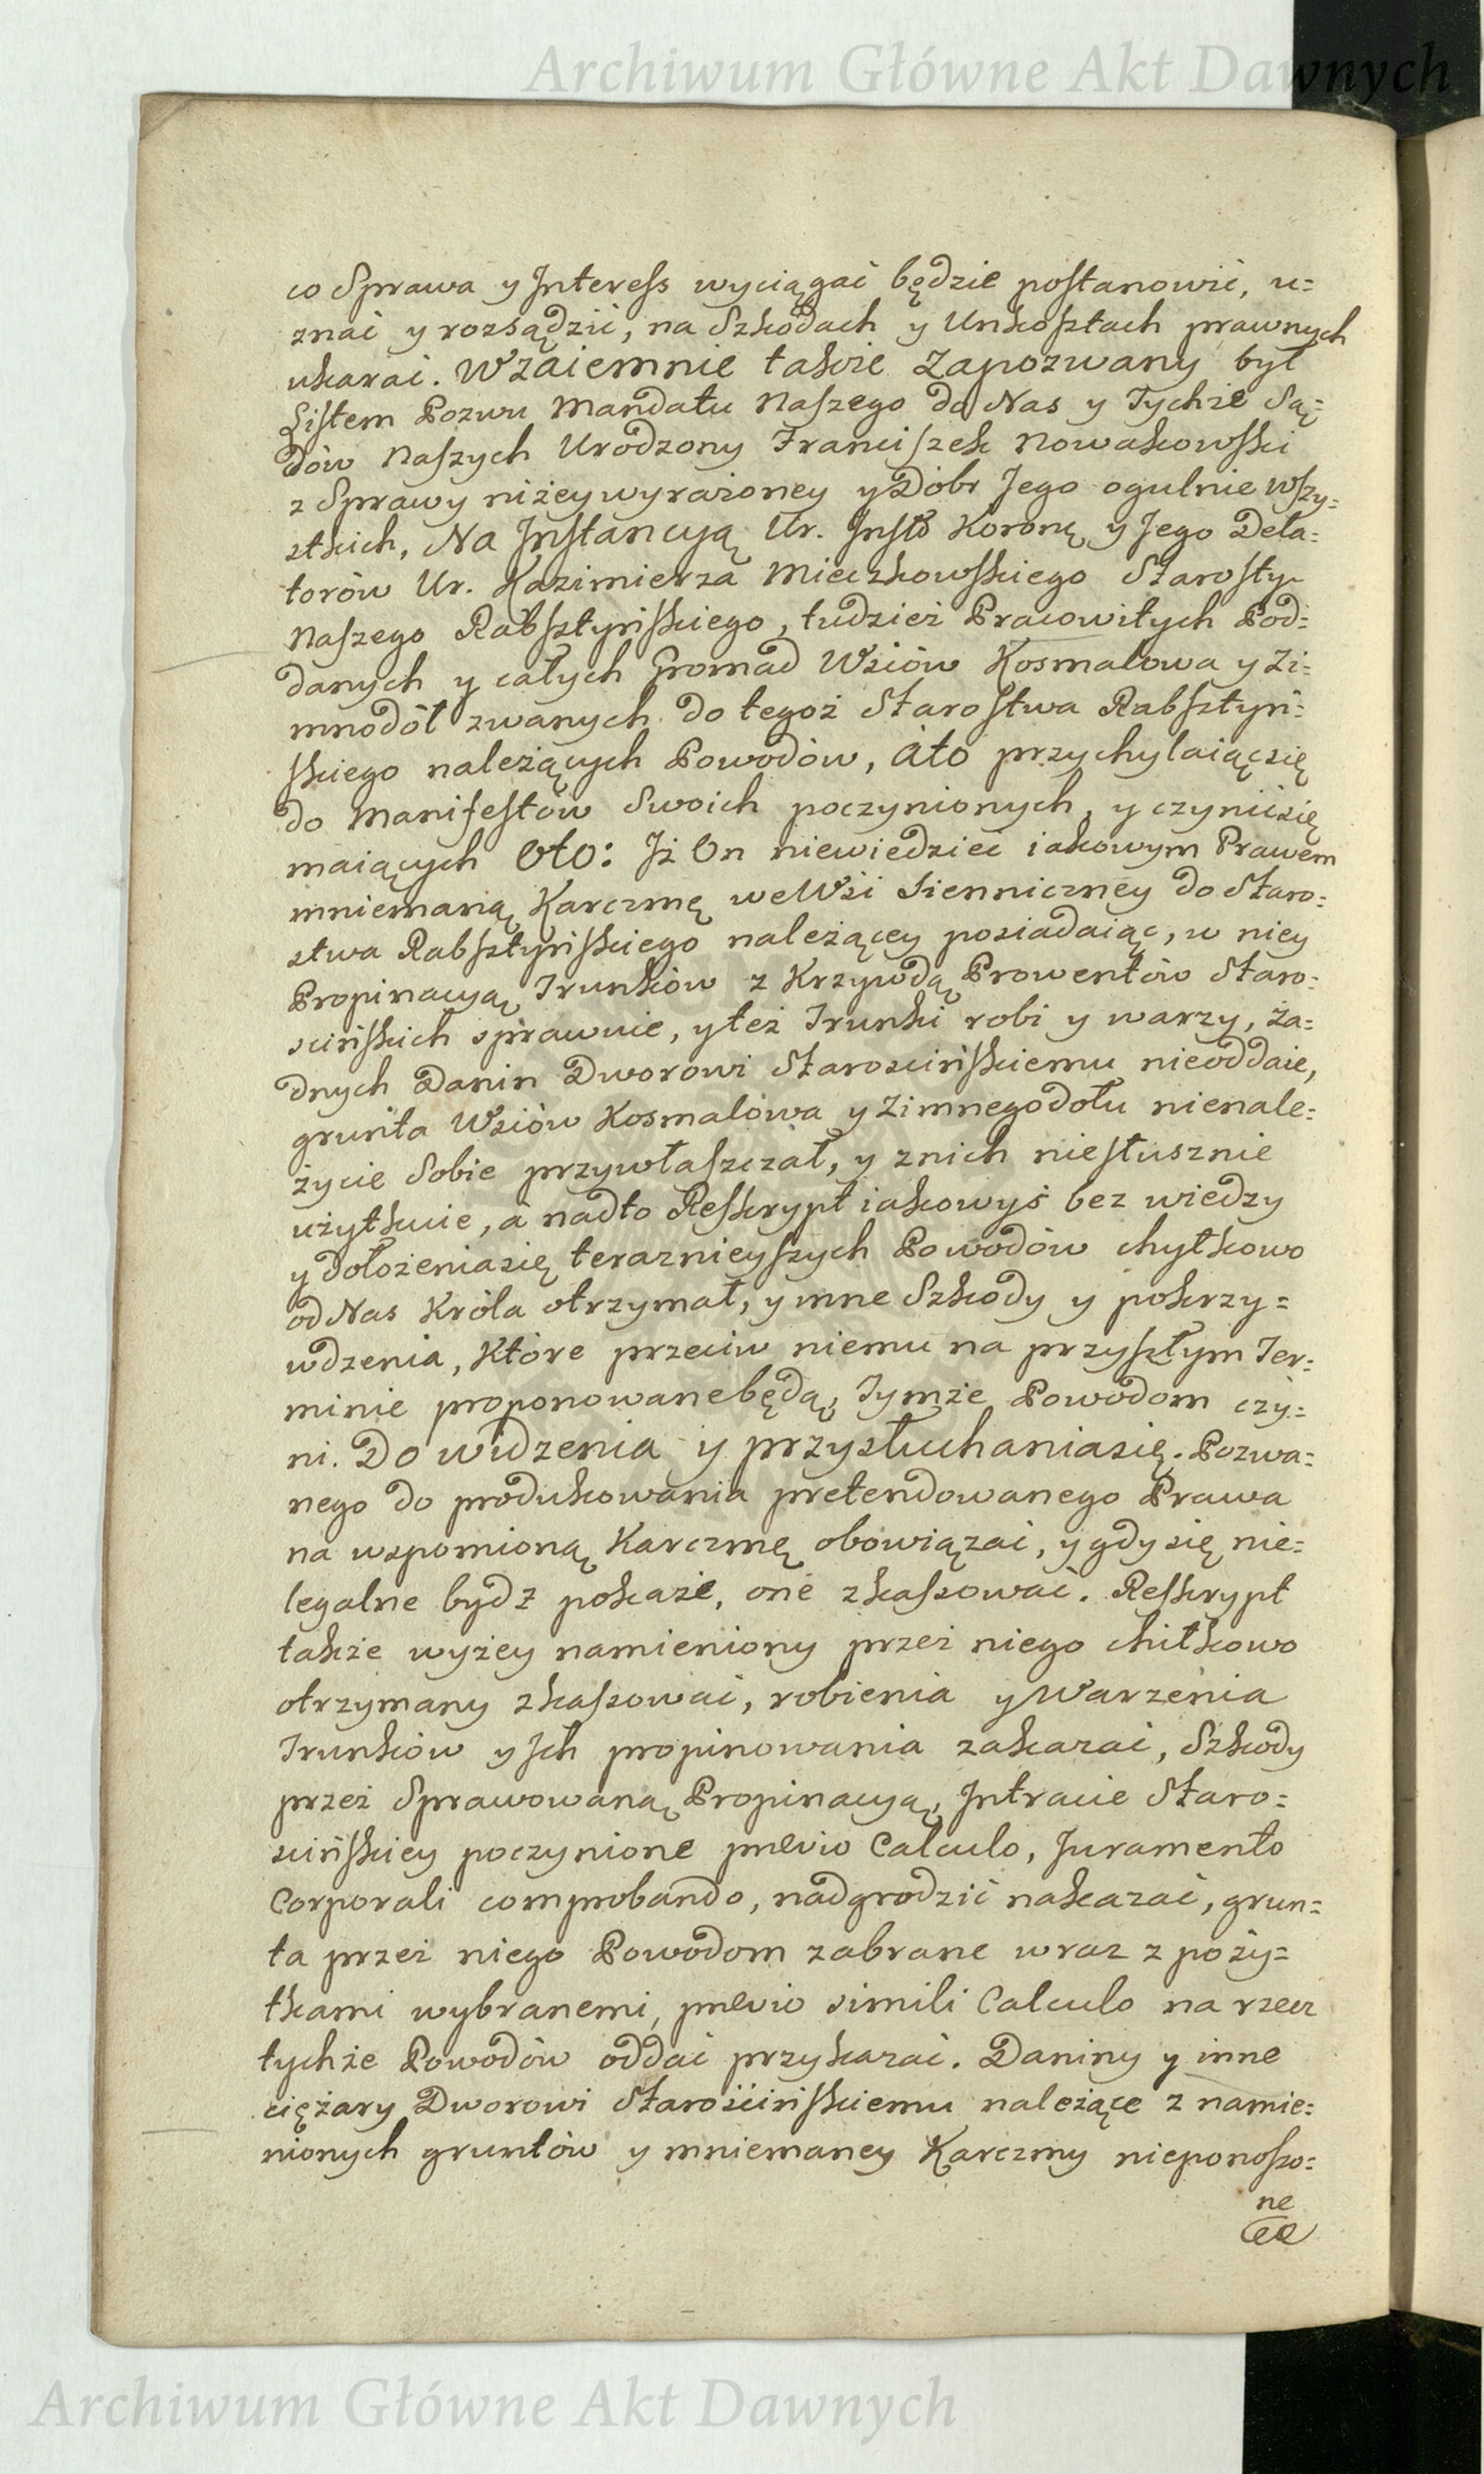 Archiwum Główne Akt Dawnych
co Sprawa y Interess wyciągać będzie postanowić, u=
znać y rozsądzić, na Szkodach y Unkosztach prawnych
ukarać. Wzaiemnie także Zapozwany był
Listem Pozwu Mandatu Naszego do Nas y Tychże Są=
dów Naszych Urodzony Franciszek Nowakowski
z Sprawy niżey wyrażoney y Dóbr Jego ogulnie Wszy=
stkich, Na Instancyą Ur. Insto Koronę y Jego Dela=
torów Ur. Kazimierza Mieczkowskiego Starosty
Naszego Rabsztyńskiego, tudzież Pracowitych Pod=
danych y całych Gromad Wsiów Kosmalowa y Zi=
mnodół zwanych do tegoż Starostwa Rabsztyń=
skiego należących Powodów, áto przychylaiąc się
do Manifestów Swoich poczynionych, y czynić się
maiących Oto: Iż On niewiedzieć iakowym Prawem
mniemaną Karczmę we Wsi Sienniczney do Staro=
stwa Rabsztyńskiego należącey posiadaiąc, w niey
Propinacyą Trunków z Krzywdą Prowentów Staro=
scińskich sprawuie, y też Trunki robi y warzy, ża=
dnych Danin Dworowi Staroscińskiemu nieoddaie,
grunta Wsiów Kosmalówa y Zimnegodołu nienale=
życie Sobie przywłaszczał, y znich niesłusznie
użytkuie, á nadto Reskrypt iakowyś bez wiedzy
y dołożenia się teraznieyszych Powodów chytkowo
od Nas Króla otrzymał, y inne Szkody y pokrzy=
wdzenia, Które przeciw niemu na przyszłym Ter=
minie proponowane będą, Tymże Powodom czy=
ni. Do widzenia y przysłuchania się. Pozwa=
nego do produkowania pretendowanego Prawa
na wspomioną Karczmę obowiązać, y gdy się nie=
legalne bydź pokaże, one zkassować. Reskrypt
także wyżey namieniony przez niego chitkowo
otrzymany zkassować, robienia y Warzenia
Trunków y Ich propinowania zakazać, Szkody
przez Sprawowaną Propinacyą, Intracie Staro=
scińskiey poczynione prævio Calculo, Juramento
Corporali comprobando, nadgrodzić nakazać, grun=
ta przez niego Powodom zabrane wraz z poży=
tkami wybranemi, prævio simili Calculo na rzecz
tychże Powodów oddać przykazać. Daniny y inne
ciężary Dworowi Starościńskiemu należące z namie=
nionych gruntów y mniemaney Karczmy nieponoszo=
ne
Archiwum Główne Akt Dawnych